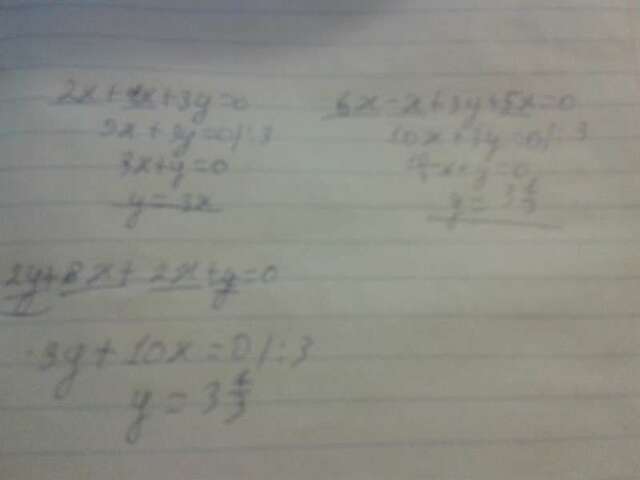 2x + 7x + 3y = 0
9x + 3y = 0 /:3
3x + y = 0
y = -3x
6x - x + 3y + 5x = 0
10x + 3y = 0 /:3
x + y = 0
y = 3
2y + 8x + 2x + y = 0
3y + 10x = 0 /:3
y = 3